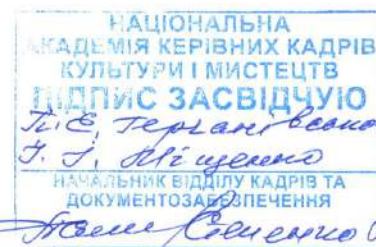 НАЦІОНАЛЬНА
АКАДЕМІЯ КЕРІВНИХ КАДРІВ
КУЛЬТУРИ І МИСТЕЦТВ
ПІДПИС ЗАСВІДЧУЮ
Міщенко
НАЧАЛЬНИК ВІДДІЛУ КАДРІВ ТА
ДОКУМЕНТОЗАБЕЗПЕЧЕННЯ